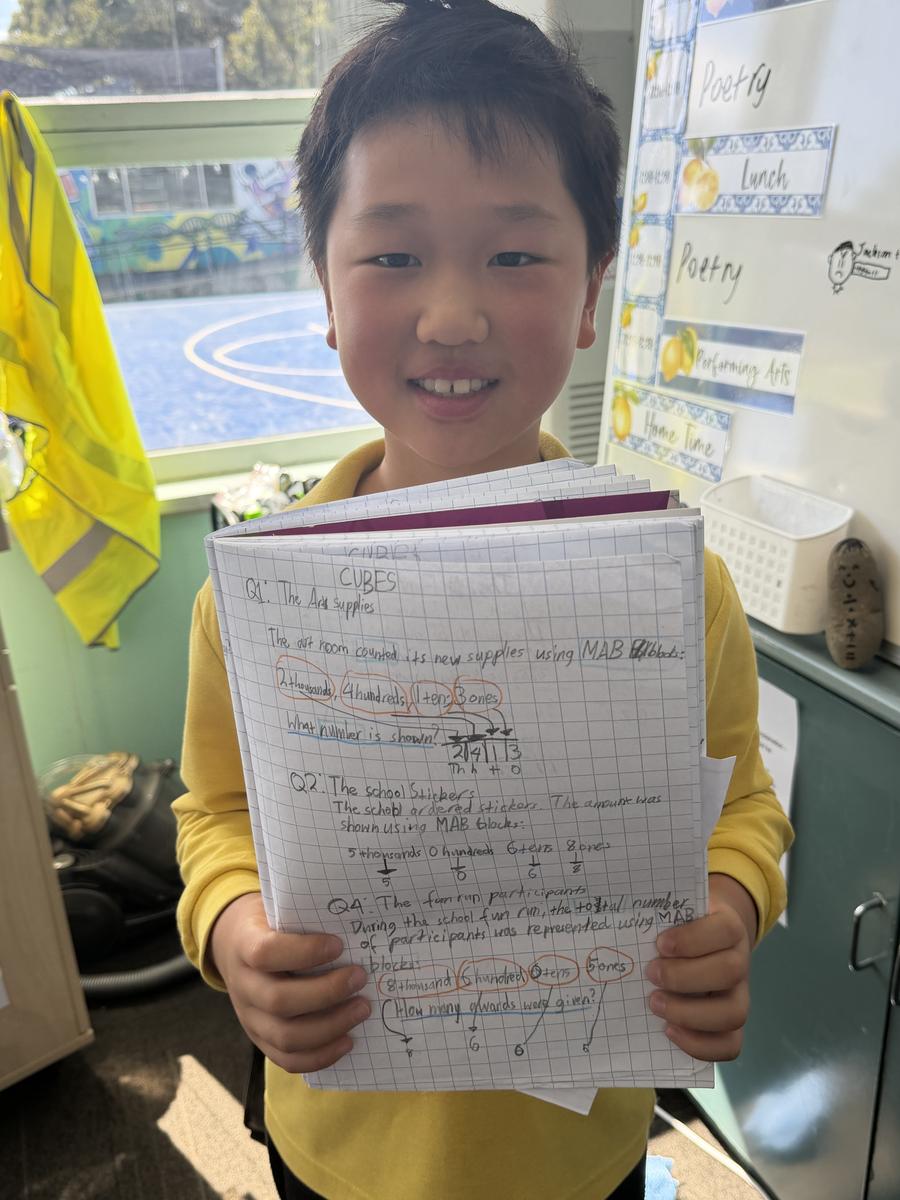 Poetry
Lunch
Poetry
Performing Arts
Home Time
CUBES
CUBES
Q1: The Art Supplies
The art room counted its new supplies using MAB blocks:
2 thousands, 4 hundreds, 1 tens 3 ones
What number is shown?
2 4 1 3
Th h t o
Q2: The school Stickers
The school ordered stickers. The amount was
shown using MAB blocks:
5 thousands 0 hundreds 6 tens 8 ones
5 0 6 8
Q4: The fun run participants
During the school fun run, the total number
of participants was represented using MAB
blocks:
8 thousand 6 hundred 0 tens 5 ones
How many awards were given?
8 6 0 5